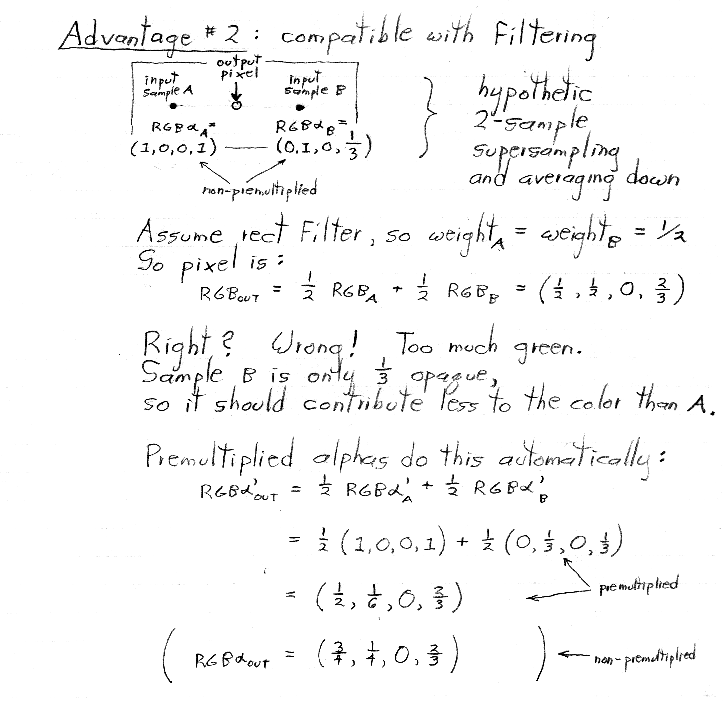 Advantage #2: compatible with Filtering
output pixel
input sample A
input sample B
RGBα_A =
(1,0,0,1)
RGBα_B =
(0,1,0,1/3)
non-premultiplied
hypothetic
2-sample
supersampling
and averaging down
Assume rect Filter, so weight_A = weight_B = 1/2
So pixel is:
RGB_OUT = 1/2 RGB_A + 1/2 RGB_B = (1/2, 1/2, 0, 2/3)
Right? Wrong! Too much green.
Sample B is only 1/3 opaque,
so it should contribute less to the color than A.
Premultiplied alphas do this automatically:
RGBα'_OUT = 1/2 RGBα'_A + 1/2 RGBα'_B
= 1/2 (1,0,0,1) + 1/2 (0,1/3,0,1/3)
= (1/2, 1/6, 0, 2/3)
premultiplied
( RGBα_OUT = (3/4, 1/4, 0, 2/3) )
non-premultiplied